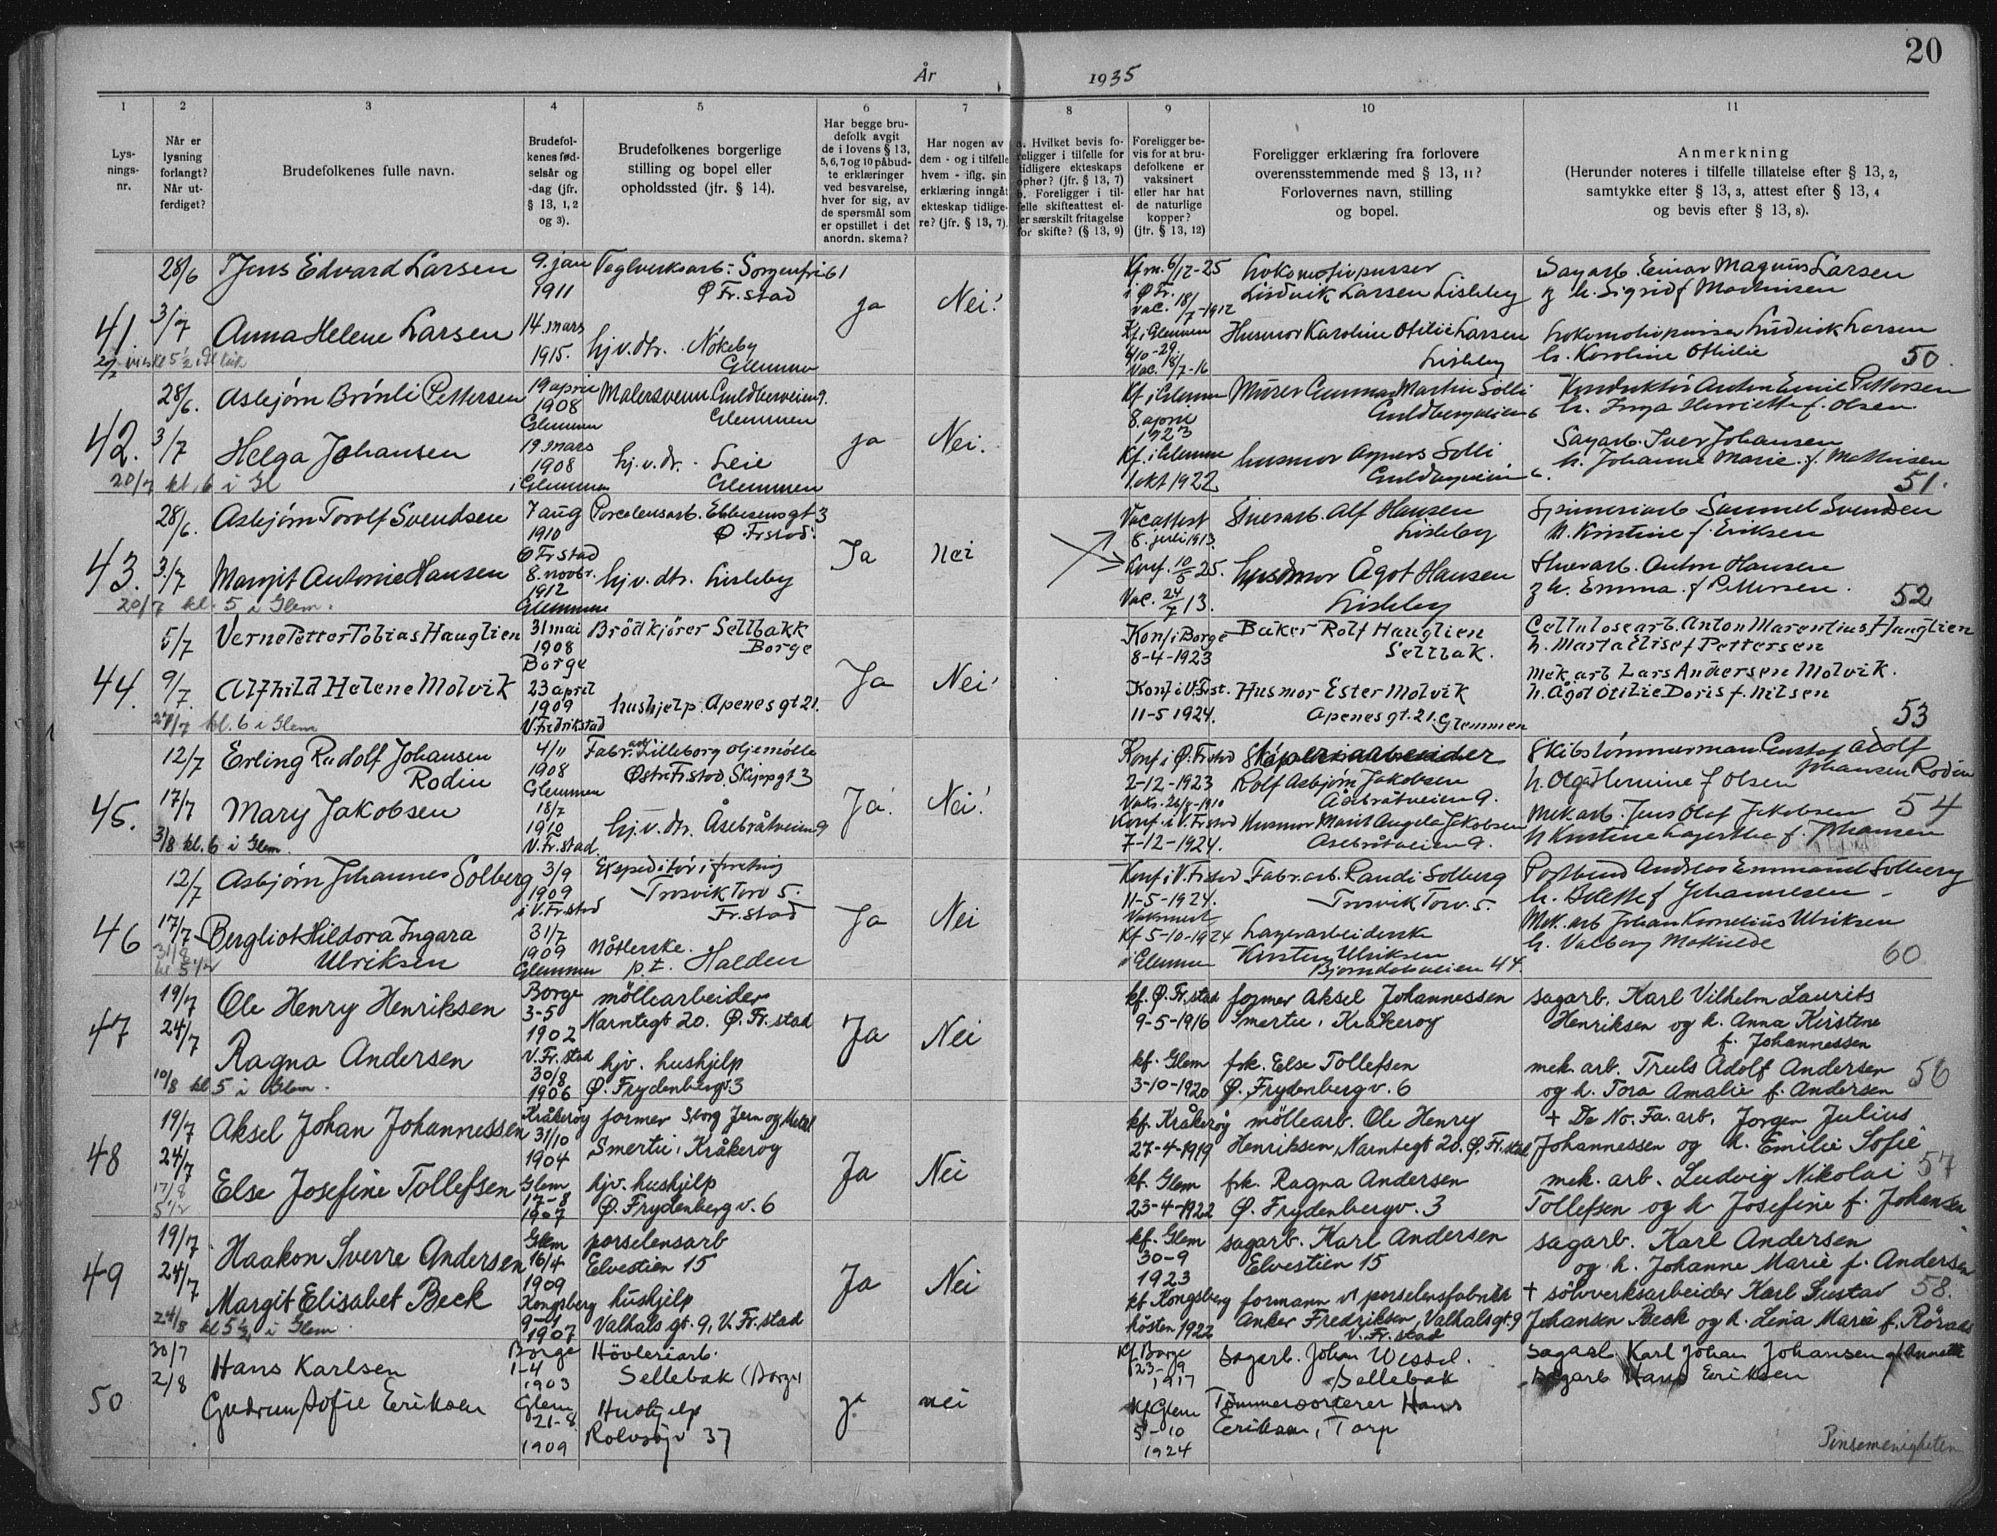 20
År 1935
1 2 3 4 5 6 7 8 9 10 11
Lys-
nings-
nr.
Når er
lysning
forlangt?
Når ut-
ferdiget?
Brudefolkenes fulle navn.
Brudefol-
kenes fød-
selsår og
-dag (jfr.
§ 13, 1, 2
og 3).
Brudefolkenes borgerlige
stilling og bopel eller
opholdssted (jfr. § 14).
Har begge bru-
defolk avgit
de i lovens § 13,
5, 6, 7 og 10 påbud-
te erklæringer
ved besvarelse,
hver for sig, av
de spørsmål som
er opstillet i det
anordn. skema?
Har nogen av
dem - og i tilfelle
hvem - iflg. sin
erklæring inngått
ekteskap tidlige-
re? (jfr. § 13, 7).
a. Hvilket bevis fo-
religger i tilfelle for
tidligere ekteskaps
ophør? (jfr. § 13, 7)
b. Foreligger i til-
felle skifteattest el-
ler særskilt fritagelse
for skifte? (§ 13, 9)
Foreligger be-
vis for at bru-
defolkene er
vaksinert
eller har hat
de naturlige
kopper?
(jfr. § 13, 12)
Foreligger erklæring fra forlovere
overensstemmende med § 13, 11?
Forlovernes navn, stilling
og bopel.
Anmerkning
(Herunder noteres i tilfelle tillatelse efter § 13, 2,
samtykke efter § 13, 3, attest efter § 13, 4
og bevis efter § 13, 8).
41
28/6
3/7
Jens Edvard Larsen
9. jan
1911
Teglverksarb. Sorgenfri 61
Ø Fr. stad
ja
Nei!
Kfm. 6/12-25
i Ø Fr.
Vac. 18/7-1912
Lokomotivpusser
Ludvik Larsen Lisleby
Sagarb. Einar Magnus Larsen
g h. Sigrid f Mathisen
Anna Helene Larsen
14. mars
1915.
hj.v.dtr. Nøkeby
Glemmen
Kf i Glemmen
Husmor Karoline Otilie Larsen
Lisleby
Lokomotivpusser Ludvik Larsen
h. Karoline Othilie
50
42.
28/6.
3/7
20/7 kl. 6 i Gl
Asbjørn Brønli Pettersen
19 april
1908
Glemmen
Malersvenn Guldbergveien 9.
Glemmen
ja
Nei.
Kf i Glemmen
8. april
1923
Murer Gunnar Martin Solli
Guldbergveien 6
Konduktør Anton Emil Pettersen
h. Inga Henriette f. Olsen
Helga Johansen
19. mars
1908
i Glemmen
hj.v.dr. Leie
Glemmen
Kf. i Glemmen
1. okt 1922
Husmor Agnes Solli
Guldbergveien 6.
Sagarb. Iver Johansen
h. Johanne Marie f. Mathisen
51.
43.
28/6.
3./7
20/7 kl. 5 i Glem.
Asbjørn Torolf Svendsen
7 aug
1910
Ø Fr stad
Porcelensarb. Ebbesensgt 3
Ø. Frstad.
Ja
Nei
Vacattest
8. juli 1913.
Stuerarb. Alf Hansen
Lisleby
Spinneriarb Samuel Svendsen
h. Kristine f. Eriksen
Margit Antonie Hansen
8. novbr.
1912
Glemmen
hj.v.dtr. Lisleby
Konf. 10/5 25.
Vac. 24/7 13.
Husmor Ågot Hansen
Lisleby
Stuerarb. Anton Hansen
g h. Emma f Pettersen.
52
44.
5/7
9/7.
27/7 kl. 6 i Glem
Verne Petter Tobias Hauglien
31 mai
1908
Borge
Brødkjører Sellbakk
Borge
Ja
Nei!
Konf i Borge
8-4-1923
Baker Rolf Hauglien
Sellbak.
Cellulosearb. Anton Marentius Hauglien
h. Marta Elise f Pettersen
Alfhild Helene Molvik
23 april
1909
V. Fredrikstad
hushjelp. Apenesgt 21.
Konf i V. Frst.
11-5 1924.
Husmor Ester Molvik
Apenesgt. 21. Glemmen
Mek arb Lars Andersen Molvik.
h. Ågot Otilie Doris f. Nilsen
53
45.
12/7
17/7
31/8 kl. 6 i Glem.
Erling Rudolf Johansen
Rodin
4/11
1908
Glemmen
Fabr. arb Lilleborg oljemølle
Østre Frstad. Skippgt 3
Ja!
Nei!
Konf i Ø. Frstad
2-12-1923
Vaks. 26/8-1910
Rolf Asbjørn Jakobsen
Åsebråtveien 9.
Skibstømmerman Gustav Adolf
Johansen Rodin
h. Olga Hermine f Olsen
Mary Jakobsen
18/7
1910
V. Fr. stad.
hj.v.dr. Åsebråtveien 9
Konf. i V. Frstad
7-12-1924.
Husmor Marit Angela Jakobsen
Åsebråtveien 9.
Mek arb. Jens Olaf Jakobsen
h Kristine f. Johansen
54
46
12/7
17/7
Asbjørn Johannes Solberg
3/9
1909
i V. Fr. stad
Ekspeditør i foretning
Trosvik Torv 5.
Fr. stad
Ja
Nei
Konf. i V. Frstad
11-5-1924.
Fabr. arb. Randi Solberg
Trosvik Torv. 5.
Postbud Andreas Emmanuel Solberg
h. Bolette f Johannesen
Bergliot Hildora Ingara
Ulriksen
31/7
1909
Glemmen
p.t. Halden
Kf 5-10-1924
i Glemmen
Lagerarbeiderske
Kirsten Ulriksen
Bjørndalveien 44.
Mek. arb Johan Kornelius Ulriksen
h. Valborg Mathilde
60
47
19/7
24/7
10/8 kl. 5 i Glem.
Ole Henry Henriksen
Borge
3-5
1902
møllearbeider
Narntegt 20. Ø. Fr. stad
Ja
Nei
kf. Ø. Fr. stad
9-5-1916
former Aksel Johannessen
Smertu, Kråkerøy
sagarb. Karl Vilhelm Laurits
Henriksen og h. Anna Kirstene
f. Johannessen
Ragna Andersen
V. Fr. stad
30/8
1906
hjv. hushjelp
Ø. Frydenbergv. 3
kf. Glem
3-10-1920
frk. Else Tollefsen
Ø. Frydenbergv. 6
mek. arb. Truls Adolf Andersen
og h. Tora Amalie f. Andersen
56
48
19/7
24/7
17/8
5 1/2
Aksel Johan Johannessen
Kråkerøy
31/10
1904
former Sborg Jern og Metal
Smertu, Kråkerøy
Ja
Nei
kf. Kråkerøy
27-4-1919
møllearb. Ole Henry
Henriksen, Narntegt 20. Ø. Fr. stad
+ De No. Fa. arb. Jørgen Julius
Johannessen og h. Emilie Sofie
Else Josefine Tollefsen
Glem
17-8
1907
hjv. hushjelp
Ø. Frydenberg v. 6
kf. Glem
23-4-1922
frk. Ragna Andersen
Ø. Frydenbergv. 3
mek. arb. Ludvig Nikolai
Tollefsen og h Josefine f. Johansen
57
49
19/7
24/7
24/8 kl 5 1/2 i Glem.
Haakon Sverre Andersen
Glem
16/4
1909
porselensarb
Elvestien 15
Ja
Nei
kf. Glem
30-9
1923
sagarb. Karl Andersen
Elvestien 15
sagarb. Karl Andersen
og h. Johanne Marie f. Andersen
Margit Elisabet Beck
Kongsberg
1907
hushjelp
Valhals gt. 9, V. Fr. stad
kf Kongsberg
høsten 1922
formann v/ porselensfabrikk
Anker Fredriksen, Valhalsgt. 9
V. Fr. stad
+ sølvverksarbeider Karl Gustav
Johansen Beck og h. Lina Marie f.
58.
50
30/7
2/8
Hans Karlsen
Borge
1-4
1903
Høvleriarb.
Sellebak (Borge)
ja
nei
Kf. Borge
23-9
1917
Sagarb. Johan Wessel.
Sellebak
Sagarb Karl Johan Johansen
Gudrun Sofie Eriksen
Glem
21-8
1909
Hushjelp
Rolvsøyv 37
Kf Glem
5-10
1924
Tømmersorterer Hans
Eriksen, Torp
Sagarb Hans Eriksen
Pinsemenigheten